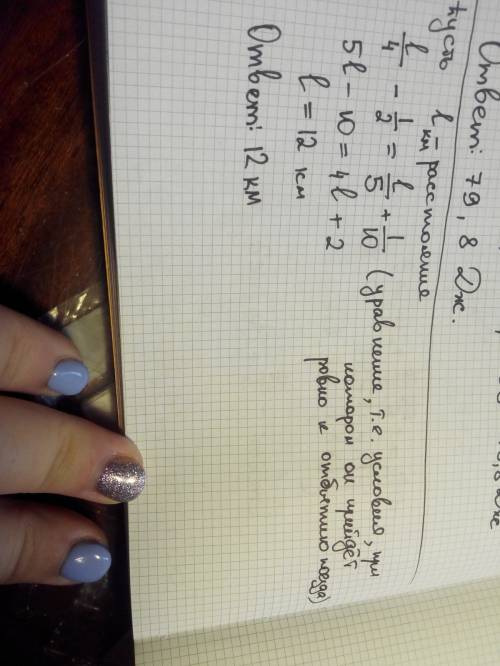 Ответ: 79,8 Дж.
Пусть l км - расстояние
l/4 - 1/2 = l/5 + 1/10 (уравнение, т.е. условия, при
котором он прийдёт
ровно к отбытию поезда)
5l - 10 = 4l + 2
l = 12 км
Ответ: 12 км